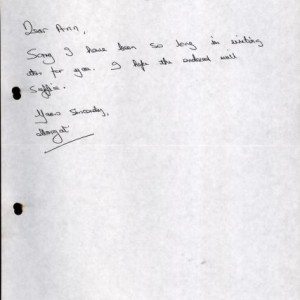 Dear Ann,
Sorry I have been so long in writing
this for you. I hope the enclosed will
suffice.
Yours Sincerely,
Margot